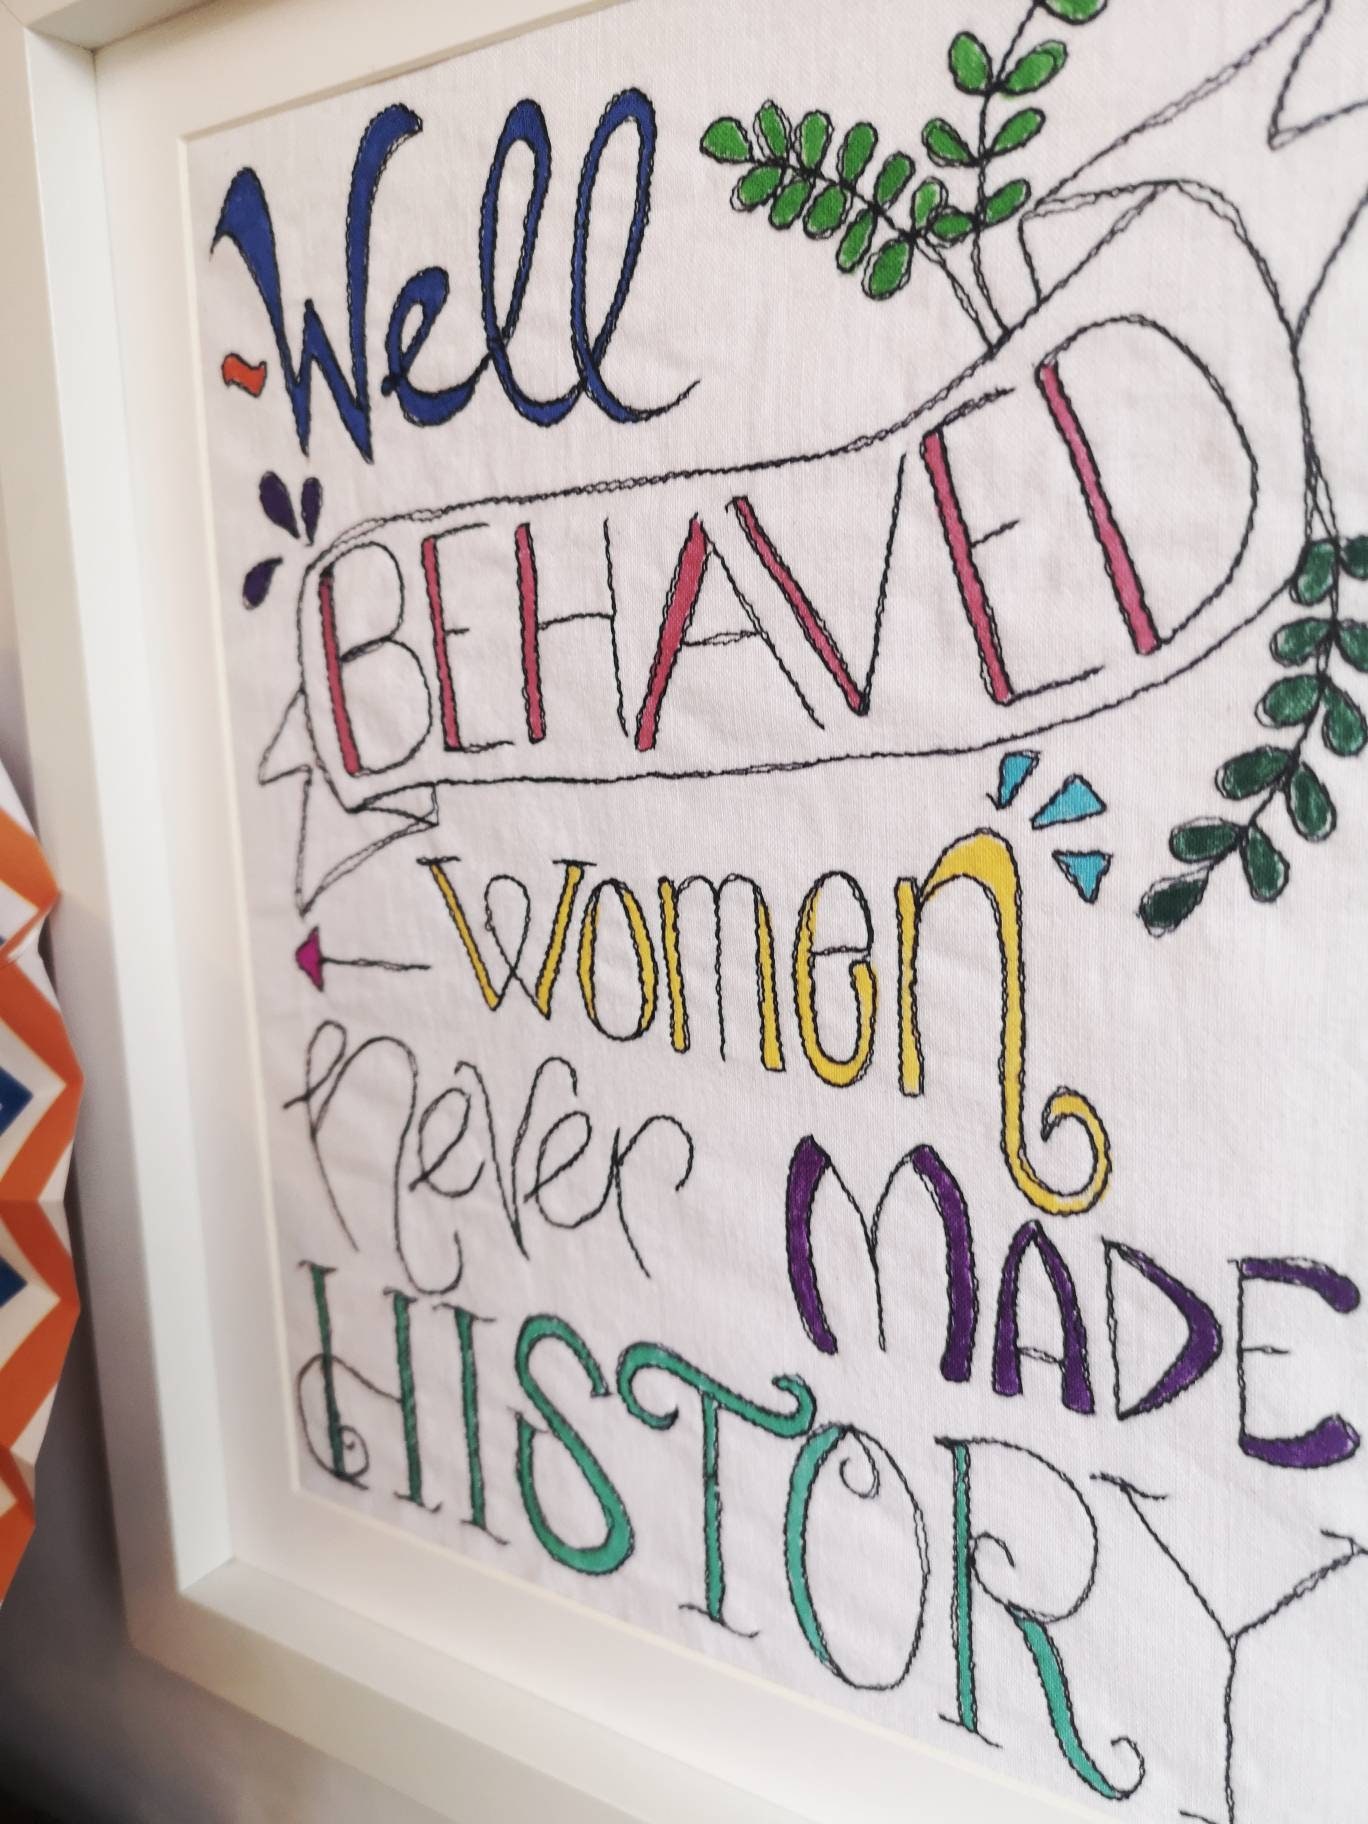 Well
BEHAVED
women
never
MADE
HISTORY